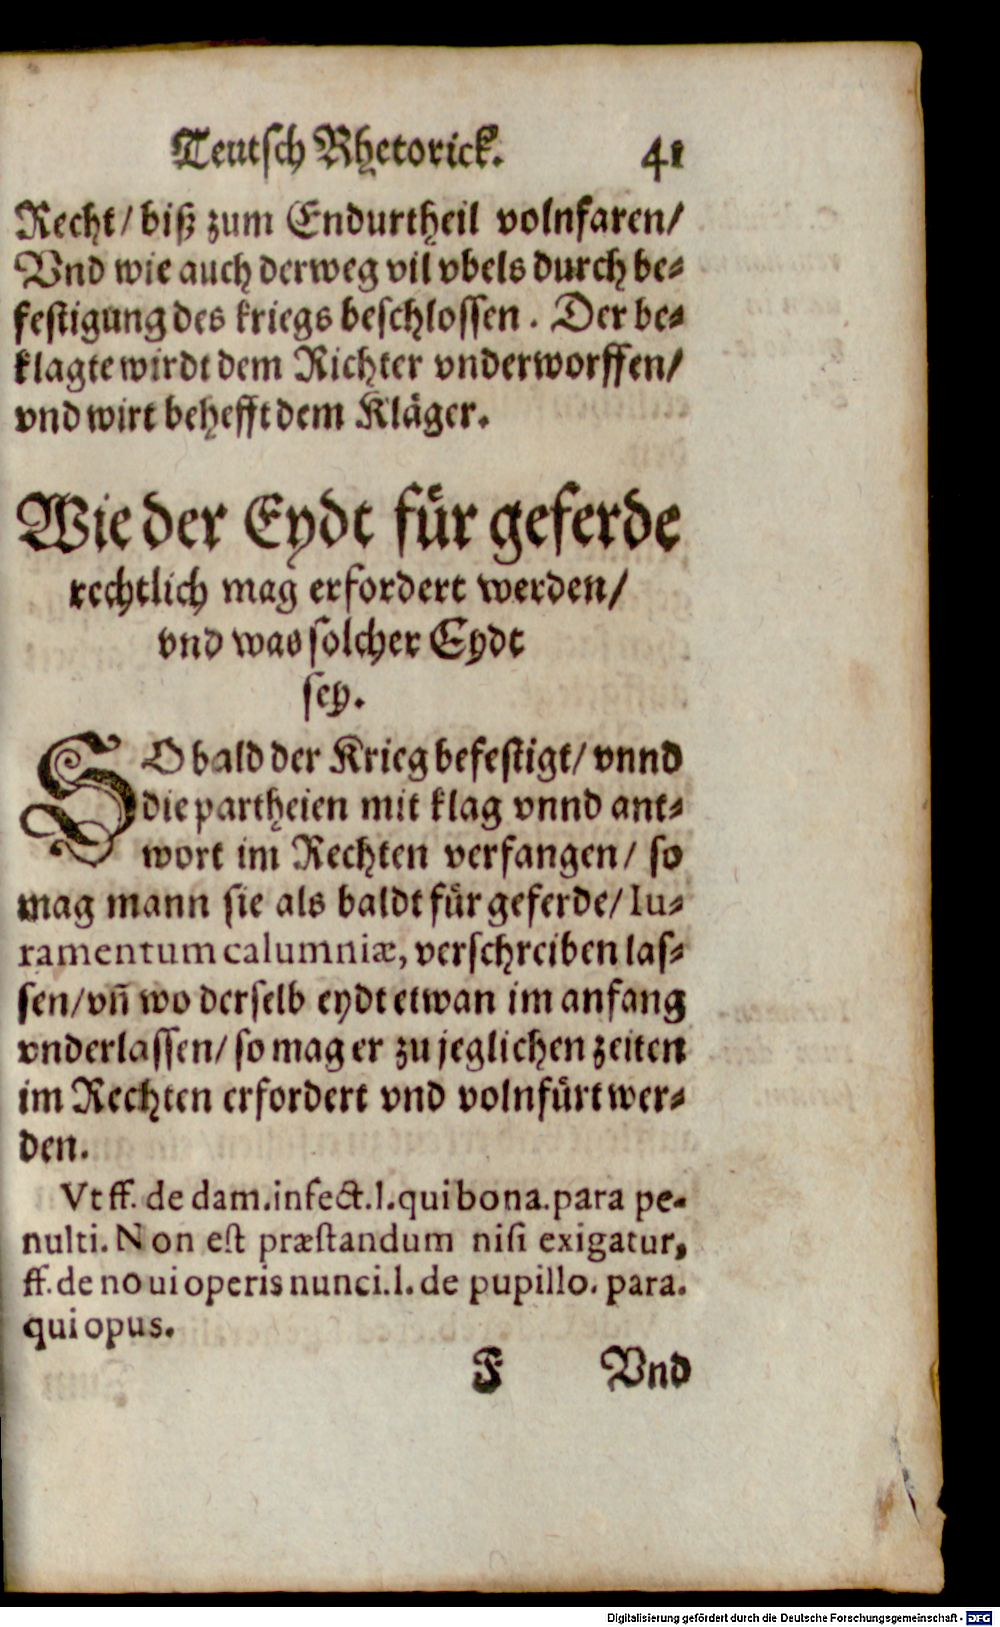 Teutsch Rhetorick. 41
Recht/ biß zum Endurtheil volnfaren/
Vnd wie auch derweg vil vbels durch be⸗
festigung des kriegs beschlossen. Der be⸗
klagte wirdt dem Richter vnderworffen/
vnd wirt behefft dem Kläger.
Wie der Eydt für geferde
rechtlich mag erfordert werden/
vnd was solcher Eydt
sey.
SO bald der Krieg befestigt/ vnnd
die partheien mit klag vnnd ant⸗
wort im Rechten verfangen/ so
mag mann sie als baldt für geferde/ Iu⸗
ramentum calumniæ, verschreiben las⸗
sen/ vñ wo derselb eydt etwan im anfang
vnderlassen/ so mag er zu jeglichen zeiten
im Rechten erfordert vnd volnfürt wer⸗
den.
Vt ff. de dam. infect. l. qui bona. para pe-
nulti. Non est præstandum nisi exigatur,
ff. de no ui operis nunci. l. de pupillo. para.
qui opus.
F Vnd
Digitalisierung gefördert durch die Deutsche Forschungsgemeinschaft - DFG